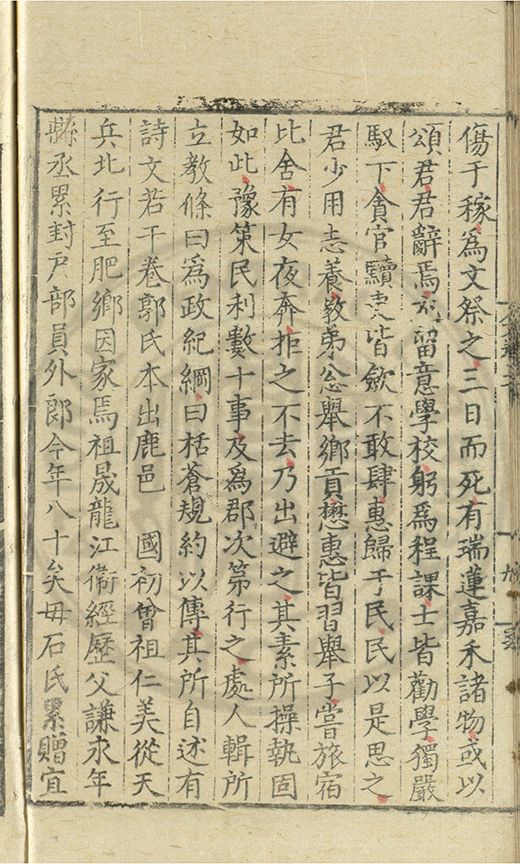 傷于稼爲文祭之三日而死有瑞蓮嘉禾諸物或以
頌君君辭焉尤留意學校躬爲程課士皆勸學獨嚴
馭下貪官黷吏皆歛不敢肆惠歸于民民以是思之
君少用志養教弟忿舉鄉貢懋惠皆習舉子嘗旅宿
比舍有女夜奔拒之不去乃出避之其素所操執固
如此豫策民利數十事及爲郡次第行之處人輯所
立教條曰爲政紀綱曰栝蒼規約以傳其所自述有
詩文若干卷郭氏本出鹿邑 國初曾祖仁美從天
兵北行至肥鄉因家焉祖晟龍江衞經歷父謙永年
縣丞累封戶部員外郎今年八十矣毋石氏累贈宜